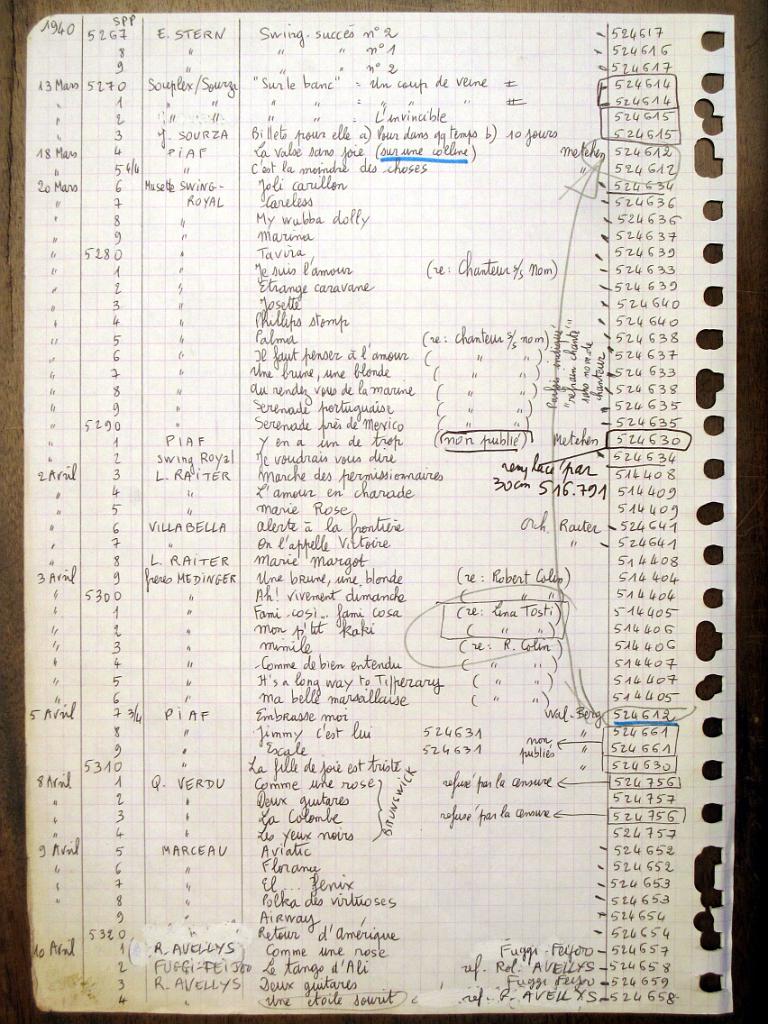 1940 SPP
5267 E. STERN Swing-succès n° 2 524617
8 " " " n° 1 524616
9 " " n° 2 524617
13 Mars 5270 Souplex/Sourza "Sur le banc" = Un coup de veine # 524614
" 1 " " " " = " " # 524614
" 2 " " " " : L'invincible 524615
" 3 J. SOURZA Billets pour elle a) Pour dans qq temps b) 10 jours 524615
18 Mars 4 PIAF La valse sans joie (sur une colline) Metehen 524612
" 5 4/4 " C'est la moindre des choses " 524612
20 Mars 6 Musette SWING- Joli carillon 524634
" 7 ROYAL Careless 524636
" 8 " My wubba dolly 524636
" 9 " Marina 524637
" 5280 " Tavira 524639
" 1 " Je suis l'amour (re: Chanteur s/s nom) 524633
" 2 " Etrange caravane 524639
" 3 " Josette 524640
" 4 " Phillips stomp 524640
" 5 " Palma (re: chanteur s/s nom) 524638
" 6 " Il faut penser à l'amour ( " " ) 524637
" 7 " Une brune, une blonde ( " " ) 524633
" 8 " Au rendez vous de la marine ( " " ) 524638
" 9 " Serenade portuguaise ( " " ) 524635
" 5290 " Serenade près de Mexico ( " " ) 524635
Parfois indiqué "refrain chanté" sans nom de chanteur
" 1 PIAF Y en a un de trop (non publié) Metehen 524630
" 2 Swing Royal Je voudrais vous dire 524634
remplacé par 30cm 516.791
2 Avril 3 L. RAITER Marche des permissionnaires 514408
" 4 " L'amour en charade 514409
" 5 " Marie Rose 514409
" 6 VILLABELLA Alerte à la frontière Orch. Raiter 524641
" 7 " On l'appelle Victoire " 524641
" 8 L. RAITER Marie Margot 514408
3 Avril 9 frères MEDINGER Une brune, une blonde (re: Robert Colin) 514404
" 5300 " Ah! vivement dimanche ( " " ) 514404
" 1 " Fami cosi.. fami cosa (re: Lina Tosti) 514405
" 2 " Mon p'tit kaki ( " " ) 514406
" 3 " Mimile (re: R. Colin) 514406
" 4 " Comme de bien entendu ( " " ) 514407
" 5 " It's a long way to Tipperary ( " " ) 514407
" 6 " Ma belle marseillaise ( " " ) 514405
5 Avril 7 3/4 PIAF Embrasse moi Wal-Berg 524612
" 8 " Jimmy c'est lui 524631 non publiés " 524661
" 9 " Escale 524631 " 524661
5310 La fille de joie est triste " 524630
8 Avril 1 Q. VERDU Comme une rose refusé par la censure 524756
" 2 " Deux guitares 524757
" 3 " La Colombe refusé par la censure 524756
" 4 " Les yeux noirs 524757
BRUNSWICK
9 Avril 5 MARCEAU Aviatic 524652
" 6 " Florana 524652
" 7 " El ... fenix 524653
" 8 " Polka des virtuoses 524653
9 " Airway 524654
5320 " Retour d'Amérique 524654
10 Avril 1 R. AVELLYS Comme une rose Fuggi-Feijoo 524657
" 2 FUGGI-FEIJOO Le tango d'Ali ref. Rol. AVELLYS 524658
" 3 R. AVELLYS Deux guitares Fuggi Feijoo 524659
" 4 " Une étoile sourit ref. R. AVELLYS 524658